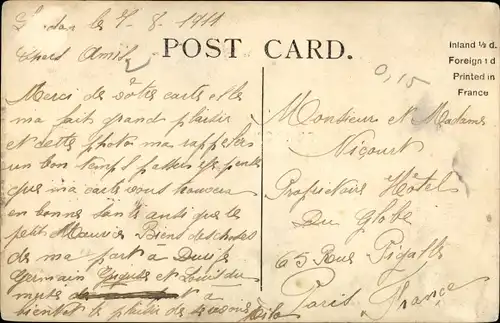 le 7-8-1911
Chers Amis
POST CARD.
Inland ½ d.
Foreign 1 d
Printed in
France
0,15
Merci de vôtre carte elle
ma fait grand plaisir
et cette photo ma rappeler
un bon temps passer je pense
que ma carte vous trouvera
en bonne santé ainsi que le
petit Maurice Biens des choses
de ma part à
Germain et Louis du
à
bientot le plaisir de
Monsieur et Madame
Nicourt
Propriétaire Hôtel
Du Globe
65 Rue Pigalle
Paris France